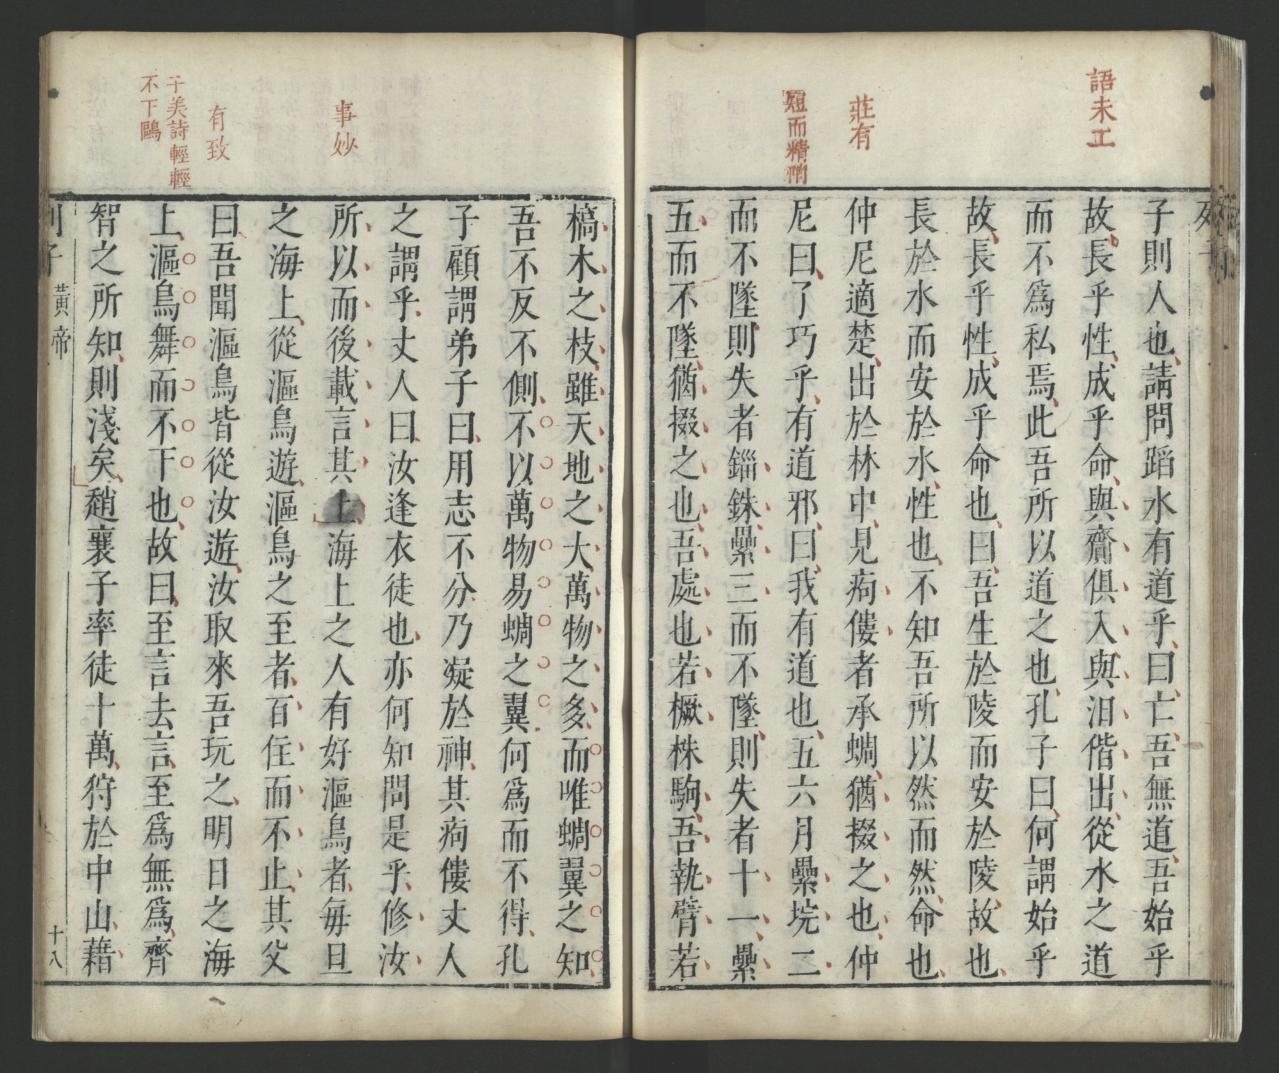 語未工
莊有
短而精稍
子則人也請問蹈水有道乎曰亡吾無道吾始乎
故長乎性成乎命與齎俱入與汨偕出從水之道
而不爲私焉此吾所以道之也孔子曰何謂始乎
故長乎性成乎命也曰吾生於陵而安於陵故也
長於水而安於水性也不知吾所以然而然命也
仲尼適楚出於林中見痀僂者承蜩猶掇之也仲
尼曰了巧乎有道邪曰我有道也五六月纍垸二
而不墜則失者錙銖纍三而不墜則失者十一纍
五而不墜猶掇之也吾處也若橛株駒吾執臂若
事妙
有致
子美詩輕輕
不下鷗
槁木之枝雖天地之大萬物之多而唯蜩翼之知
吾不反不側不以萬物易蜩之翼何爲而不得孔
子顧謂弟子曰用志不分乃凝於神其痀僂丈人
之謂乎丈人曰汝逢衣徒也亦何知問是乎修汝
所以而後載言其上海上之人有好漚鳥者每旦
之海上從漚鳥遊漚鳥之至者百住而不止其父
曰吾聞漚鳥皆從汝遊汝取來吾玩之明日之海
上漚鳥舞而不下也故曰至言去言至爲無爲齊
智之所知則淺矣趙襄子率徒十萬狩於中山藉
列子 黃帝 十八